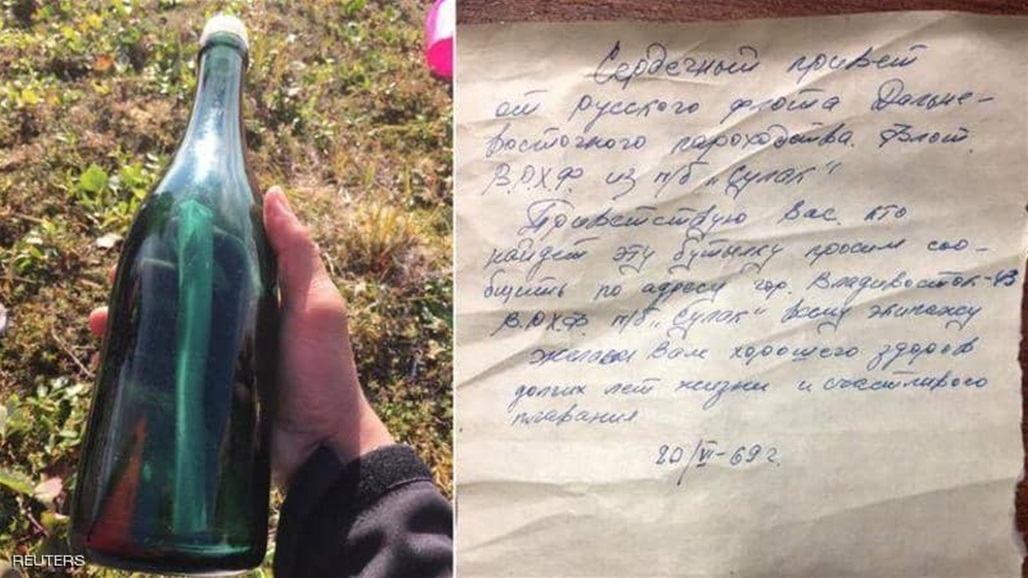 Сердечный привет
от русского флота Дальне-
восточного пароходства. Флот.
В.О.Х.Ф. из п/б „Сулак"
Приветствую Вас кто
найдет эту бутылку просим соо-
бщить по адресу гор. Владивосток-43
В.О.Х.Ф. п/б „Сулак" всему экипажу
желаем Вам хорошего здоров
долгих лет жизни и счастливого
плавания
20/VI-69г.
REUTERS